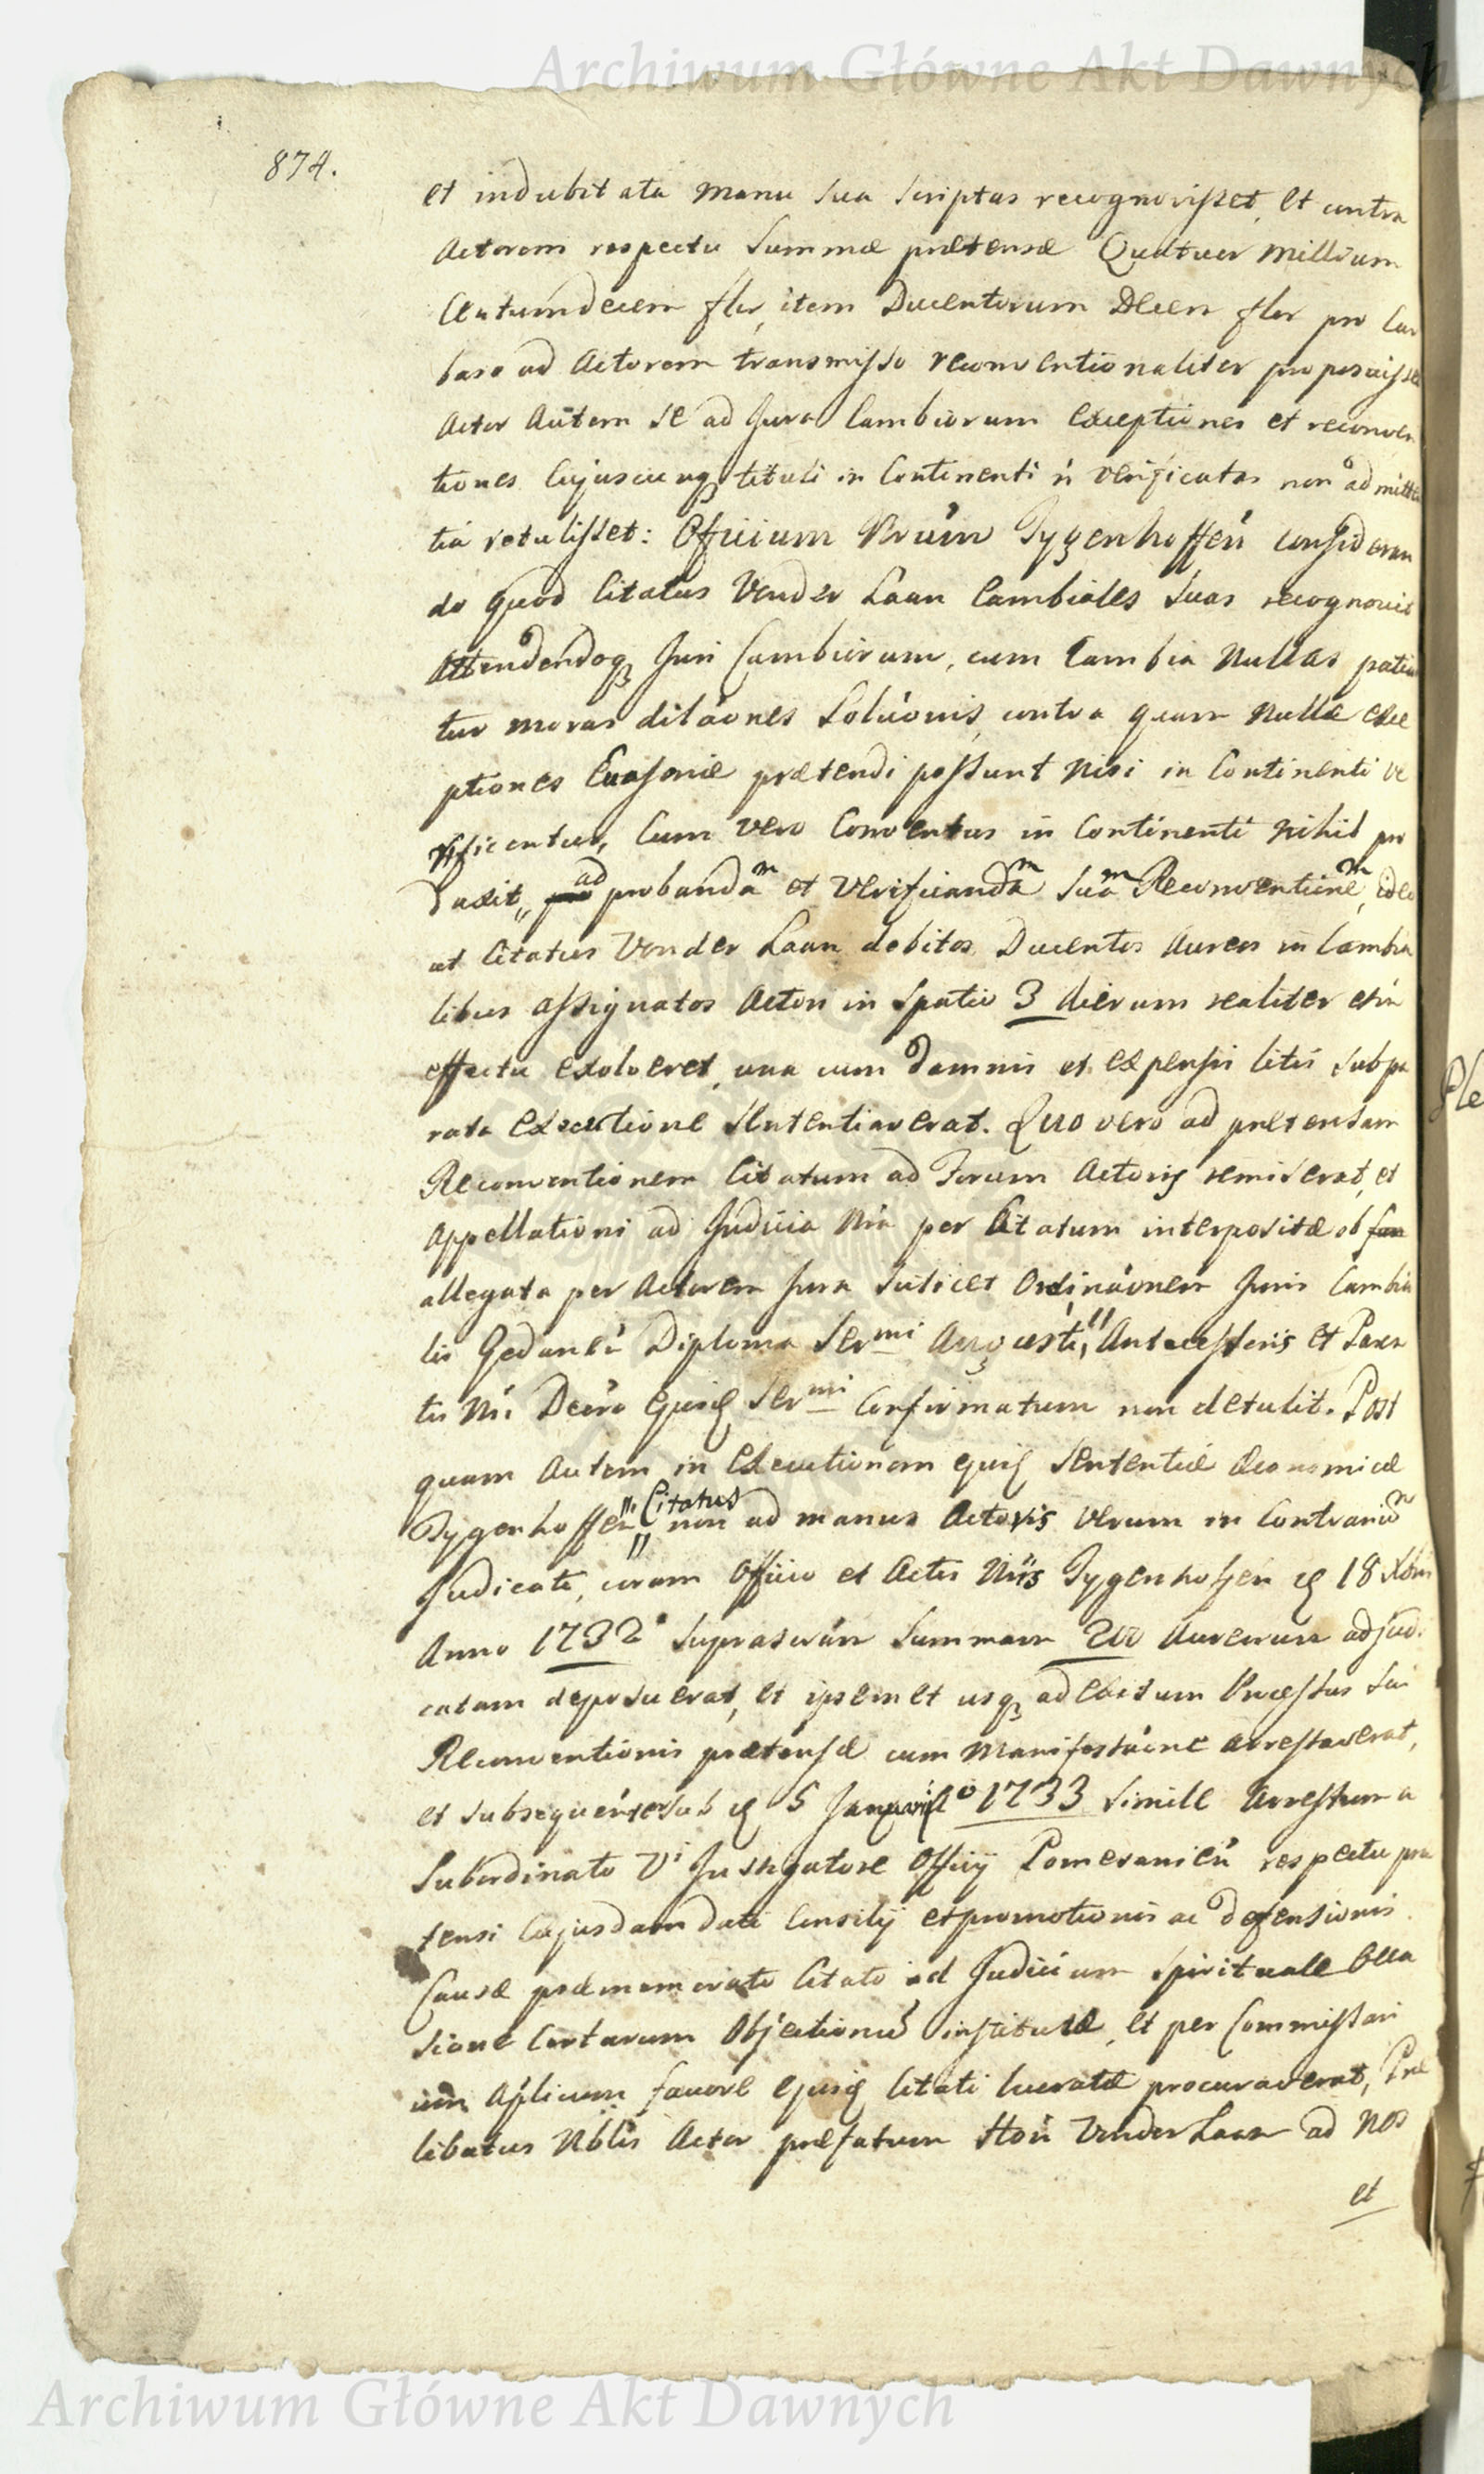 Archiwum Główne Akt Dawnych
874.
et indubitata manu sua scriptas recognovisset, et contra
Actorem respectu Summæ prætensæ Quatuor Millium
Centumdecem flor, item Ducentorum Decem flor pro Car
baso ad Actorem transmisso reconventionaliter proposuisset
Actor Autem se ad Jura Cambiorum exceptiones et reconven
tiones Cujuscunq tituli in Continenti ń verificatas non admitten
tia retulisset: Officium Nrum Tygenhoffeń consideran
do quod Citatus Vonder Laan Cambiales suas recognovit
Attendendoq Juri Cambiorum, cum Cambia Nullas patian
tur moras dilaones Soluonis, contra quam Nullæ exce
ptiones Evasoriæ prætendi possunt Nisi in Continenti ve
rificentur, Cum vero Conventus in Continenti Nihil pro
duxit, ad probanda^m et Verificanda^m Sua^m Reconventione^m, ideo
ut Citatus Vonder Laan debitos Ducentos Aureos in Cambia
libus assignatos Actori in spatio 3 dierum realiter et in
effectu exolveret, una cum damnis et expensis litis sub pa
rata executione Sententiaverat. Quo vero ad prætensam
Reconventionem Citatum ad Forum Actoris remiserat, et
Appellationi ad Judicia Nra per Citatum interpositæ ob
allegata per Actorem Jura Scilicet Ordinaonem Juris Cambia
lis Gedaneń Diploma Ser^mi Augusti, Antecessoris et Paren
tis Nri Decro Ejusq Ser^mi Confirmatum non detulit. Post
quam Autem in Executionem ejusq Sententiæ Œconomicæ
Tygenhoffeń Citatus non ad manus Actoris Verum in Contrariu^m
Judicati, coram Officio et Actis Nris Tygenhoffeń 18 Xbris
Anno 1732° Suprascriptam Summam 200 Aureorum adjudi
catam deposuerat, et ipsemet usq ad exitum Processus Sui
Reconventionis prætensæ cum Manifestaone arrestaverat,
et subsequenter sub 5 Januarij A° 1733 simile Arrestum a
Subordinato Vi Instigatore Officij Pomeranień respectu præ
tensi Cujusdam dati Consilij et promotionis ac defensionis
Causæ præmemorato Citato ad Judicium Spirituale Occa
sione Certarum Objectionu institutæ, et per Commissari
um Aplicum favore ejusq Citati lucratæ procuraverat, Præ
libatus Nblis Actor præfatum Hon Vonder Laan ad Nos
et
Archiwum Główne Akt Dawnych